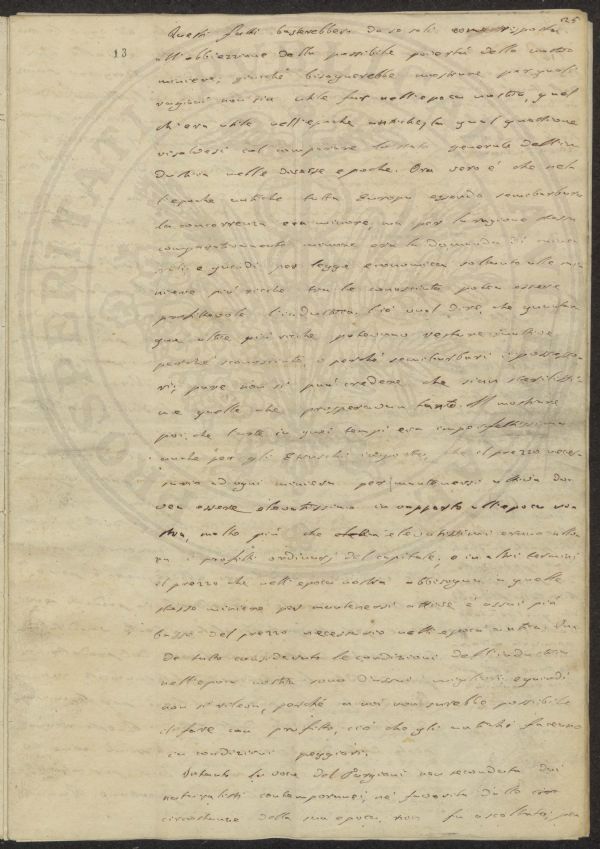 25
13
Questi fatti basterebbero da se soli come risposta
all'obbiezione della possibile povertà delle nostre
miniere; giacchè bisognerebbe mostrare per quali
ragioni non sia utile far nell'epoca nostra, quel
ch'era utile nell'epoche antiche; la qual quistione
risolvesi col comparare lo stato generale dell'in
dustria nelle diverse epoche. Ora vero è che nel
l'epoche antiche tutta Europa essendo semibarbara
la concorrenza era minore, ma per la ragione stessa
comparativamente minore era la domanda di mine
rali, e quindi per legge economica soltanto alle mi
niere più ricche tra le conosciute potea essere
profittevole l'industria. Ciò vuol dire, che quantun
que altre più ricche potevano restare inattive
perchè sconosciute, o perchè semibarbari i possesso
ri; pure non si può credere che sien sterilissi
me quelle che prosperavan tanto. Al mostrare
poi, che l'arte in quei tempi era imperfettissima
anche per gli Etruschi importa, che il prezzo neces
sario ad ogni miniera per mantenersi attiva do
vea essere elevatissimo in rapporto all'epoca nos
tra, molto più che elevatissimi erano allo
ra i profitti ordinarj del capitale; o in altri termini
il prezzo che nell'epoca nostra abbisogna a quelle
stesse miniere per mantenersi attive è assai più
basso del prezzo necessario nell'epoca antica. On
de tutto considerato le condizioni dell'industria
nell'epoca nostra sono d'assai migliori, e quindi
non si rileva, perchè a noi non sarebbe possibile
il fare con profitto, ciò che gli antichi faceano
in condizioni peggiori.
Intanto la voce del Targioni non secondata dai
naturalisti contemporanei, nè favorita dalle
circostanze della sua epoca, non fu ascoltata, per